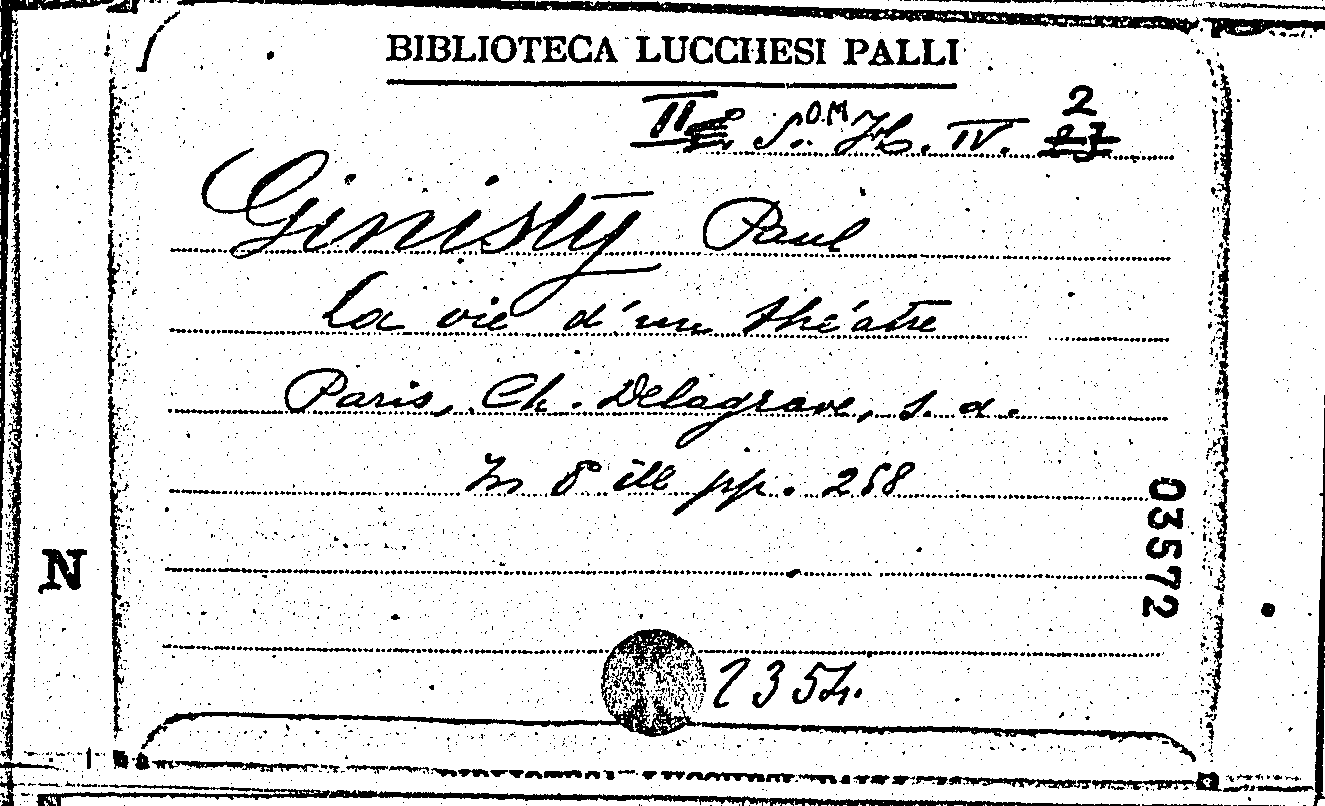 BIBLIOTECA LUCCHESI PALLI
II S. O.M. IV. 2
Ginisty Paul
La vie d'un théatre
Paris, Ch. Delagrave, s. d.
In 8° ill pp. 268
03572
N
2354.